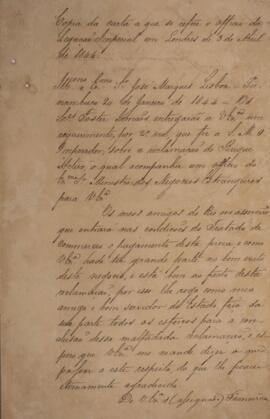 Copia da carta a que se refere o officio da
Legação Imperial em Londres de 3 de Abril
de 1844.
Illmo. e Exmo. Sr. José Marques Lisboa - Per-
nambuco 20 de Janeiro de 1844 - Os
Sres. Foster Irmaõs entregarão a V. Exa. um
requerimento, por 2a. via, que fez a S. M. O
Imperador, sobre a reclamação do Brigue
o qual acompanha um officio do
Exmo. Sr. Ministro dos Negocios Estrangeiros
para V. Exa.
Os meus amigos do Rio
que entrara nas condições do Tratado de
Commercio o pagamento desta preza, e como
V. Exa. hade ter grande parte no bom exito
deste negocio, e está bem ao facto desta
reclamação, por isso lhe rogo como meu
amigo e bom servidor do Estado faça da
sua parte todos os esforços para a con-
clusão desta malfadada reclamação, e es-
pero que V. Exa. me mande dizer o que se
passar a este respeito do que lhe ficarei
eternamente agradecido.
De V. Exa. (assignado)